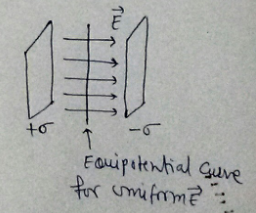 E⃗
+σ -σ
Equipotential Curve
for uniform E⃗